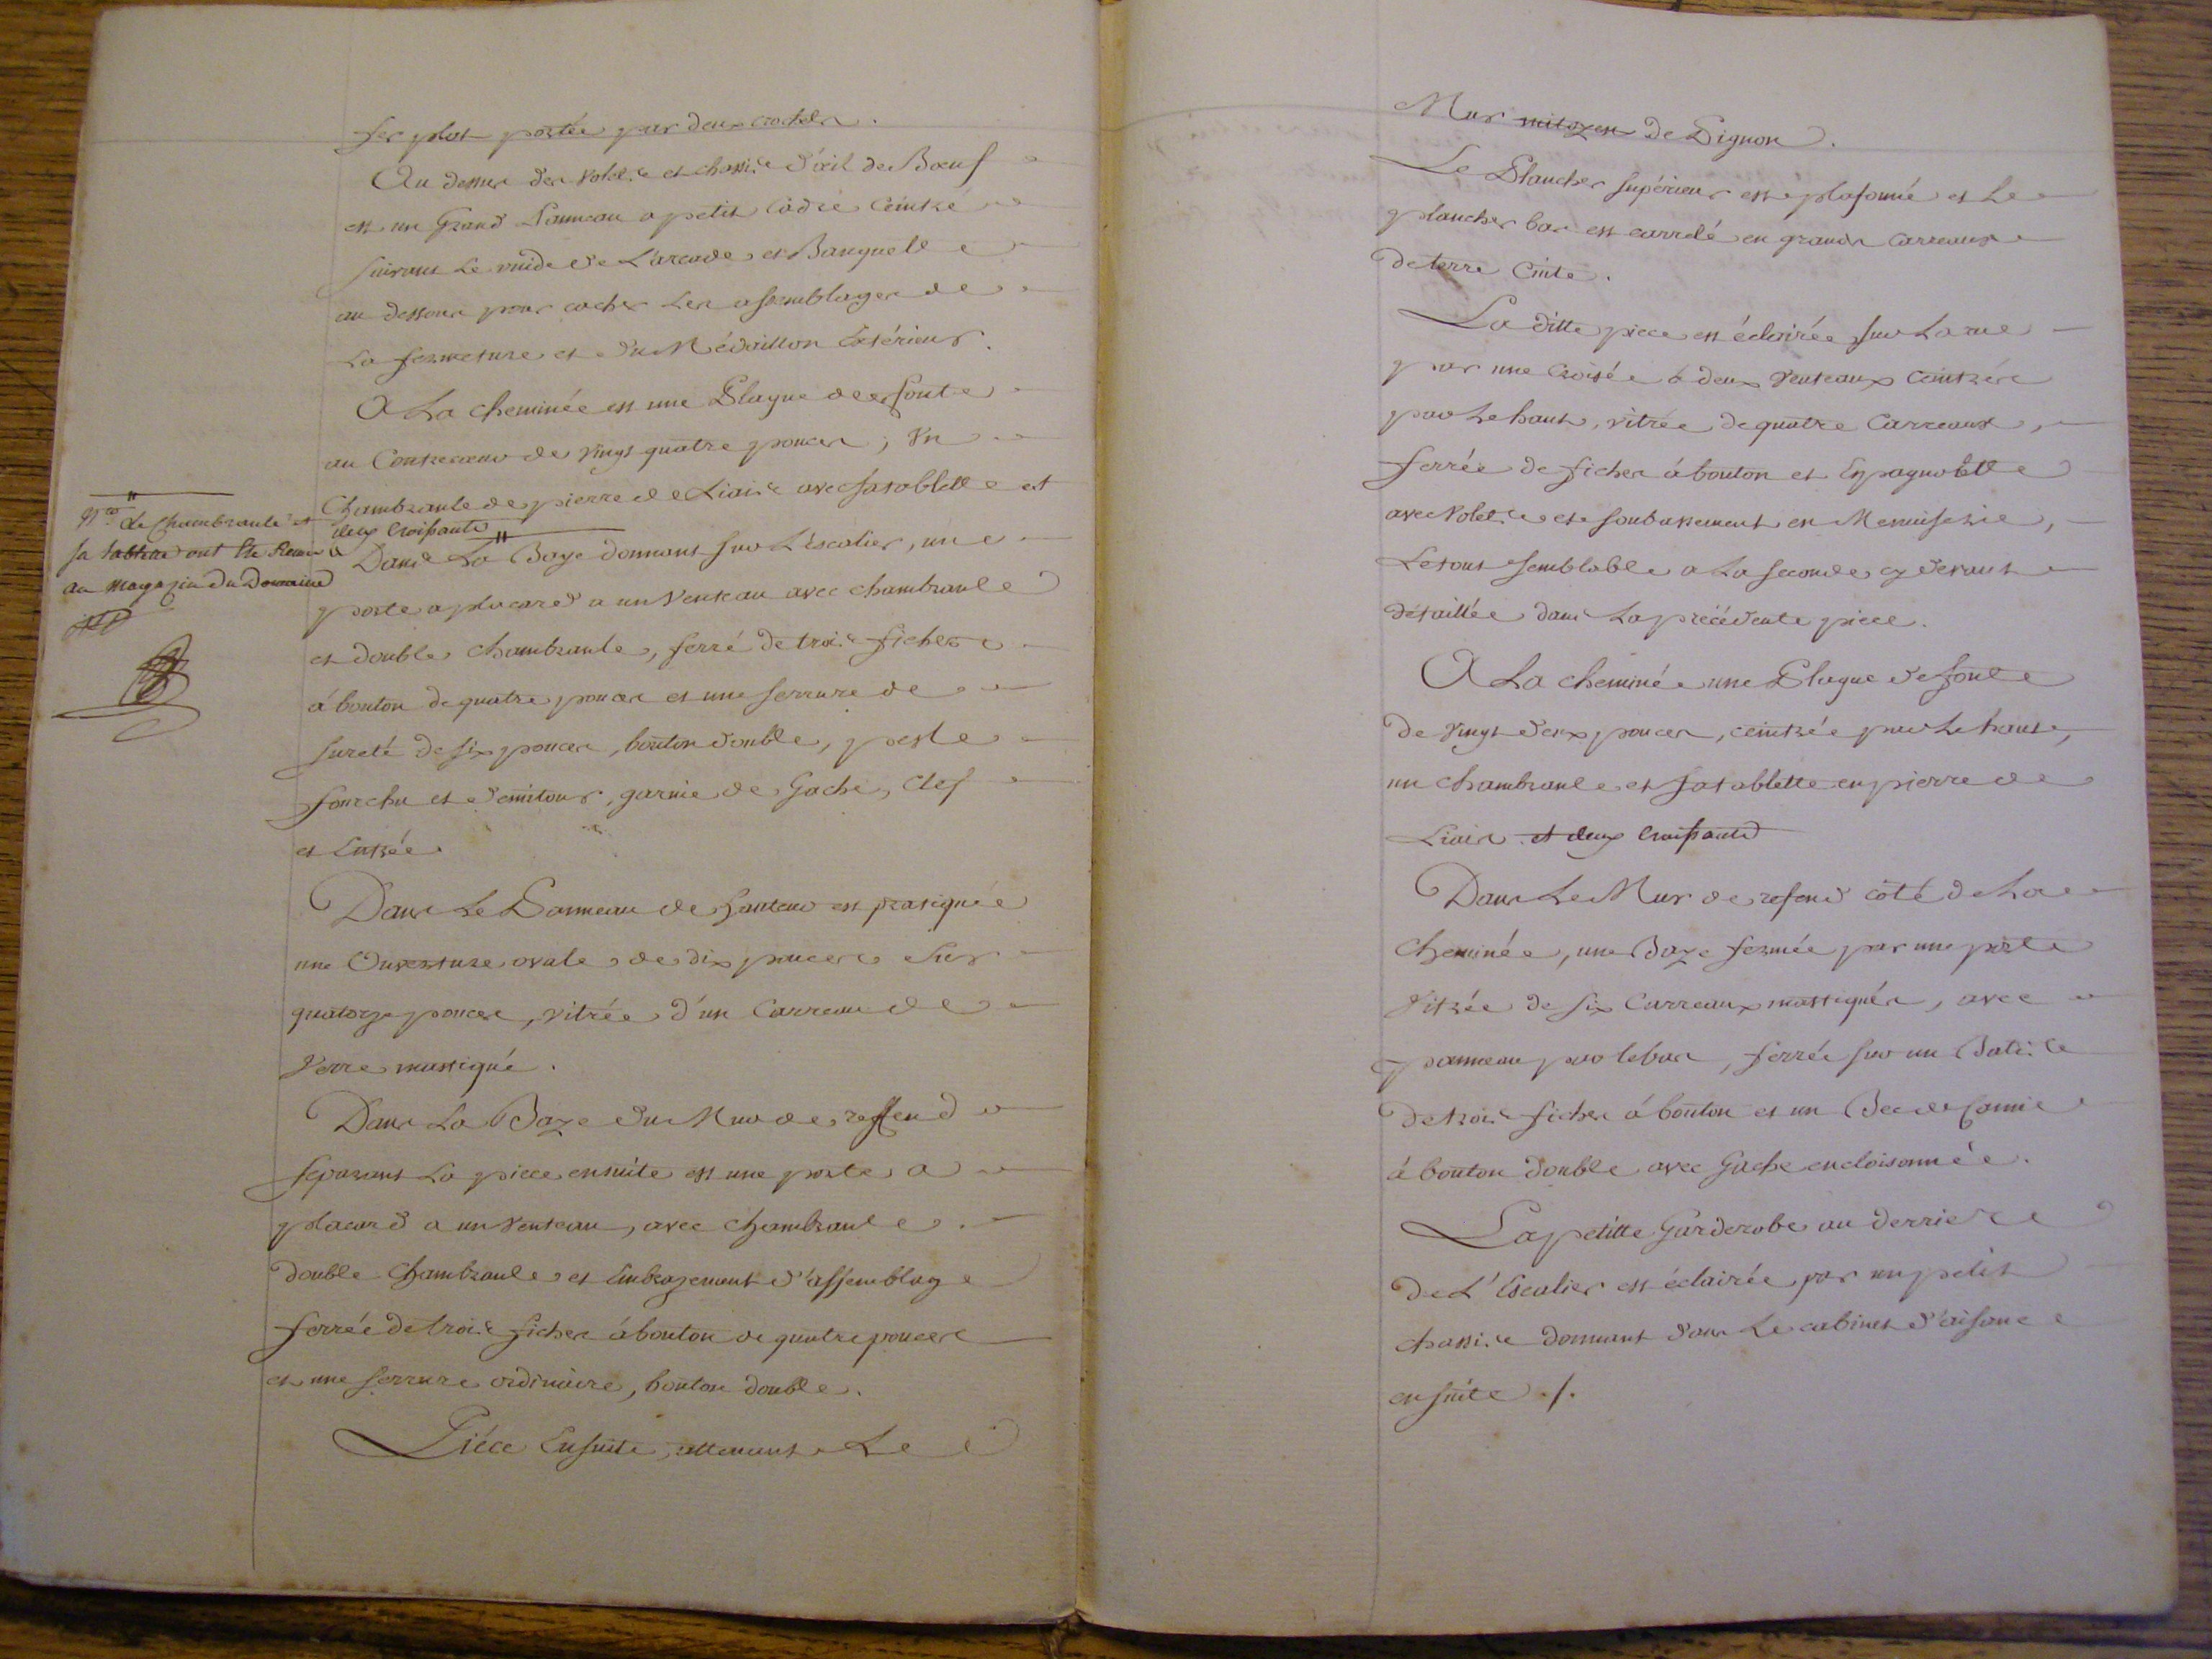 fer plat portée par deux crochets.
Au dessus des volets et chassis d'œil de Bœuf
est un Grand Panneau a petit Cadre Ceintré
suivant le vuide de L'arcade et Banquette
au dessous pour cacher Les assemblages de
La fermeture et du Médaillon Extérieur.
A La cheminée est une Plaque de fonte
au Contrecœur de vingt quatre pouces, un
Chambranle de pierre de Liais avec sa tablette et
deux Croissants
Nta Le Chambranle et
sa tablette ont été Remis
au magazin du Domaine
Dans La Baye donnant sur L'escalier, une
porte a placard a un Venteau avec chambranle
et double chambranle, ferré de trois fiches
à bouton de quatre pouces et une serrure de
sureté de six pouces, bouton double, pesle
fourchu et demitour, garnie de Gache, Clef
et Entrée.
Dans Le Panneau de hauteur est pratiquée
une Ouverture ovale de dix pouces sur
quatorze pouces, vitrée d'un Carreau de
Verre mastiqué.
Dans La Baye du Mur de reffend
separant La piece ensuite est une porte a
placard a un Venteau, avec chambranle
double Chambranle et Embrazement d'assemblage
ferrée de trois fiches à bouton de quatre pouces
et une serrure ordinaire, bouton double.
Piéce Ensuite attenant Le
Mur mitoyen de Pignon.
Le Plancher supérieur est plafonné et Le
plancher bas est carrelé en grands Carreaux
de terre Cuite.
La ditte piece est éclairée sur La rue
par une Croisée à deux Venteaux Ceintrés
par Le haut, vitrée de quatre Carreaux,
ferrée de fiches à bouton et Espagnolette
avec Volets et soubassement en Menuiserie,
Le tout semblable a La seconde cy devant
détaillée dans La précédente piece.
A La cheminée une Plaque de fonte
de vingt deux pouces, ceintrée par Le haut,
un chambranle et sa tablette en pierre de
Liais et deux Croissants
Dans Le Mur de refend côté de La
Cheminée, une Baye fermée par une porte
Vitrée de six Carreaux mastiqués, avec
panneau par le bas, ferrée sur un Batis
de trois fiches à bouton et un Bec de Canne
à bouton double avec Gache encloisonnée.
La petitte Garderobe au derriere
de L'Escalier est éclairée par un petit
chassis donnant dans Le cabinet d'aisance
ensuite ./.